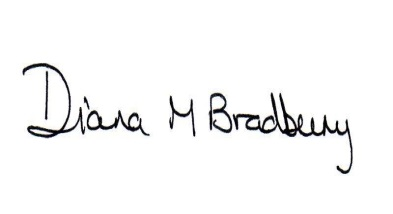 Diana M Bradbury